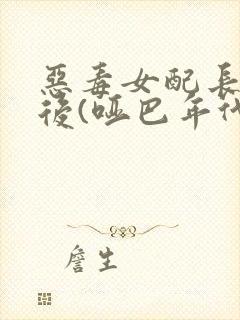 惡毒女配長
後(啞巴年代
詹生